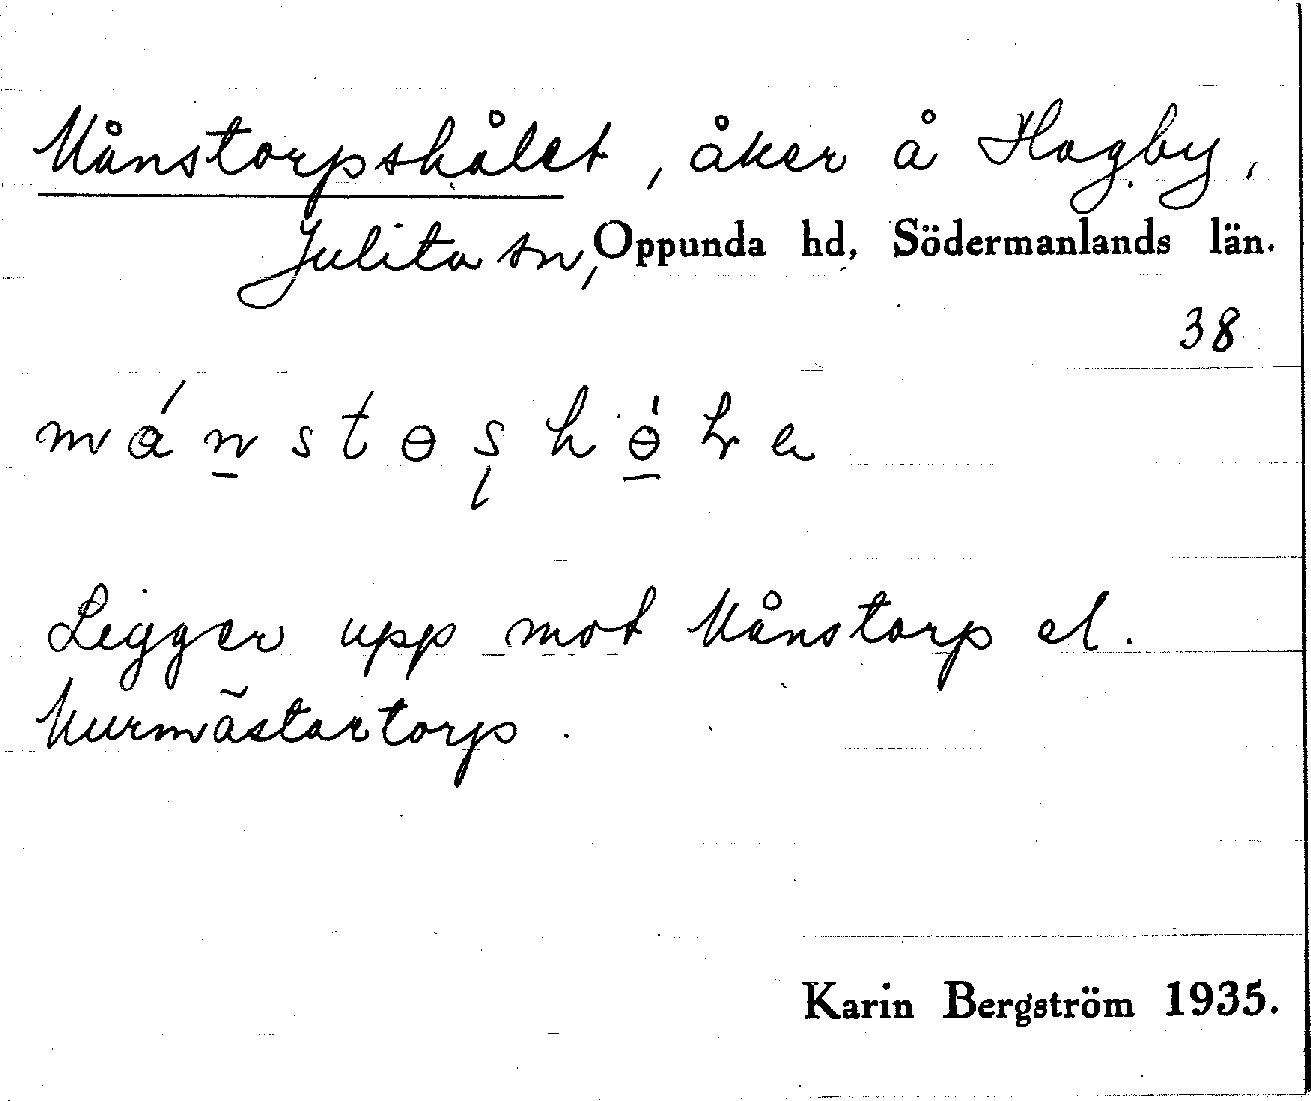 Månstorpshålet, åker å Hagby,
Julita sn, Oppunda hd, Södermanlands län.
38
Ligger upp mot Månstorp el.
Murmästartorp.
Karin Bergström 1935.